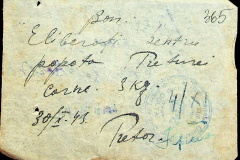 Bon. 365
Eliberați pentru
popota Preturei
carne 3 Kg.
4/XI
30/X.43.
Pretor,